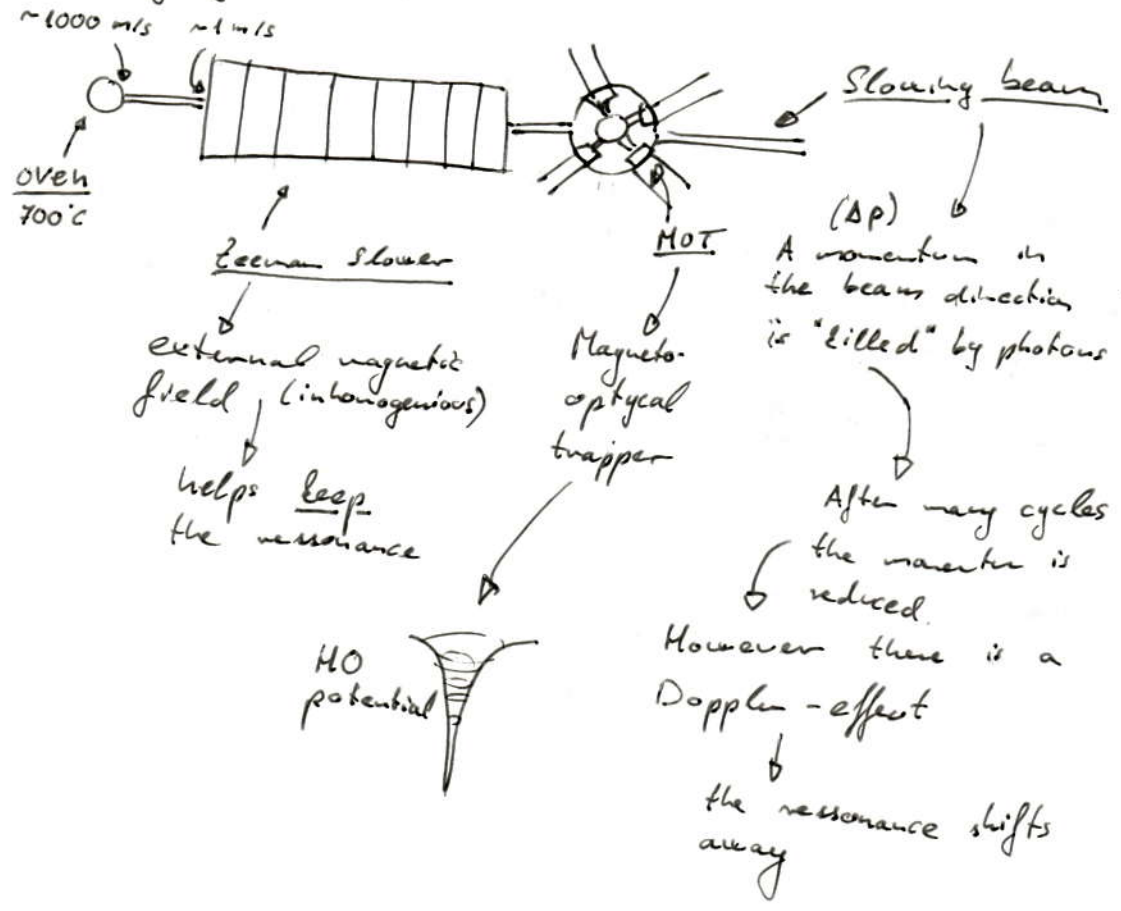 ~1000 m/s
~1 m/s
oven
700°C
Zeeman slower
external magnetic
field (inhomogenious)
helps keep
the ressonance
MOT
Magneto-
optycal
trapper
MO
potential
Slowing beam
(Δp)
A momentum in
the beam direction
is "killed" by photons
After many cycles
the momentum is
reduced.
However there is a
Doppler-effect
the ressonance shifts
away